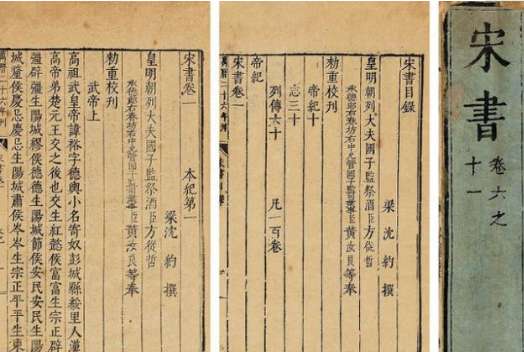 宋書卷一 本紀第一
梁沈約撰
皇明朝列大夫國子監祭酒臣方從哲
承德郎右春坊右中允管國子監司業事臣黃汝良等奉
勅重校刊
武帝上
高祖武皇帝諱裕字德輿小名寄奴彭城縣綏里人漢
高帝弟楚元王交之後也交生紅懿侯富富生宗正辟
彊辟彊生陽城繆侯德德生陽城節侯安民安民生陽
城釐侯慶忌慶忌生陽城肅侯岑岑生宗正平平生東
宋書目錄
梁沈約撰
皇明朝列大夫國子監祭酒臣方從哲
承德郎右春坊右中允管國子監司業事臣黃汝良等奉
勅重校刊
帝紀十
志三十
列傳六十 凡一百卷
帝紀
宋書卷一
宋書
卷六之
十一